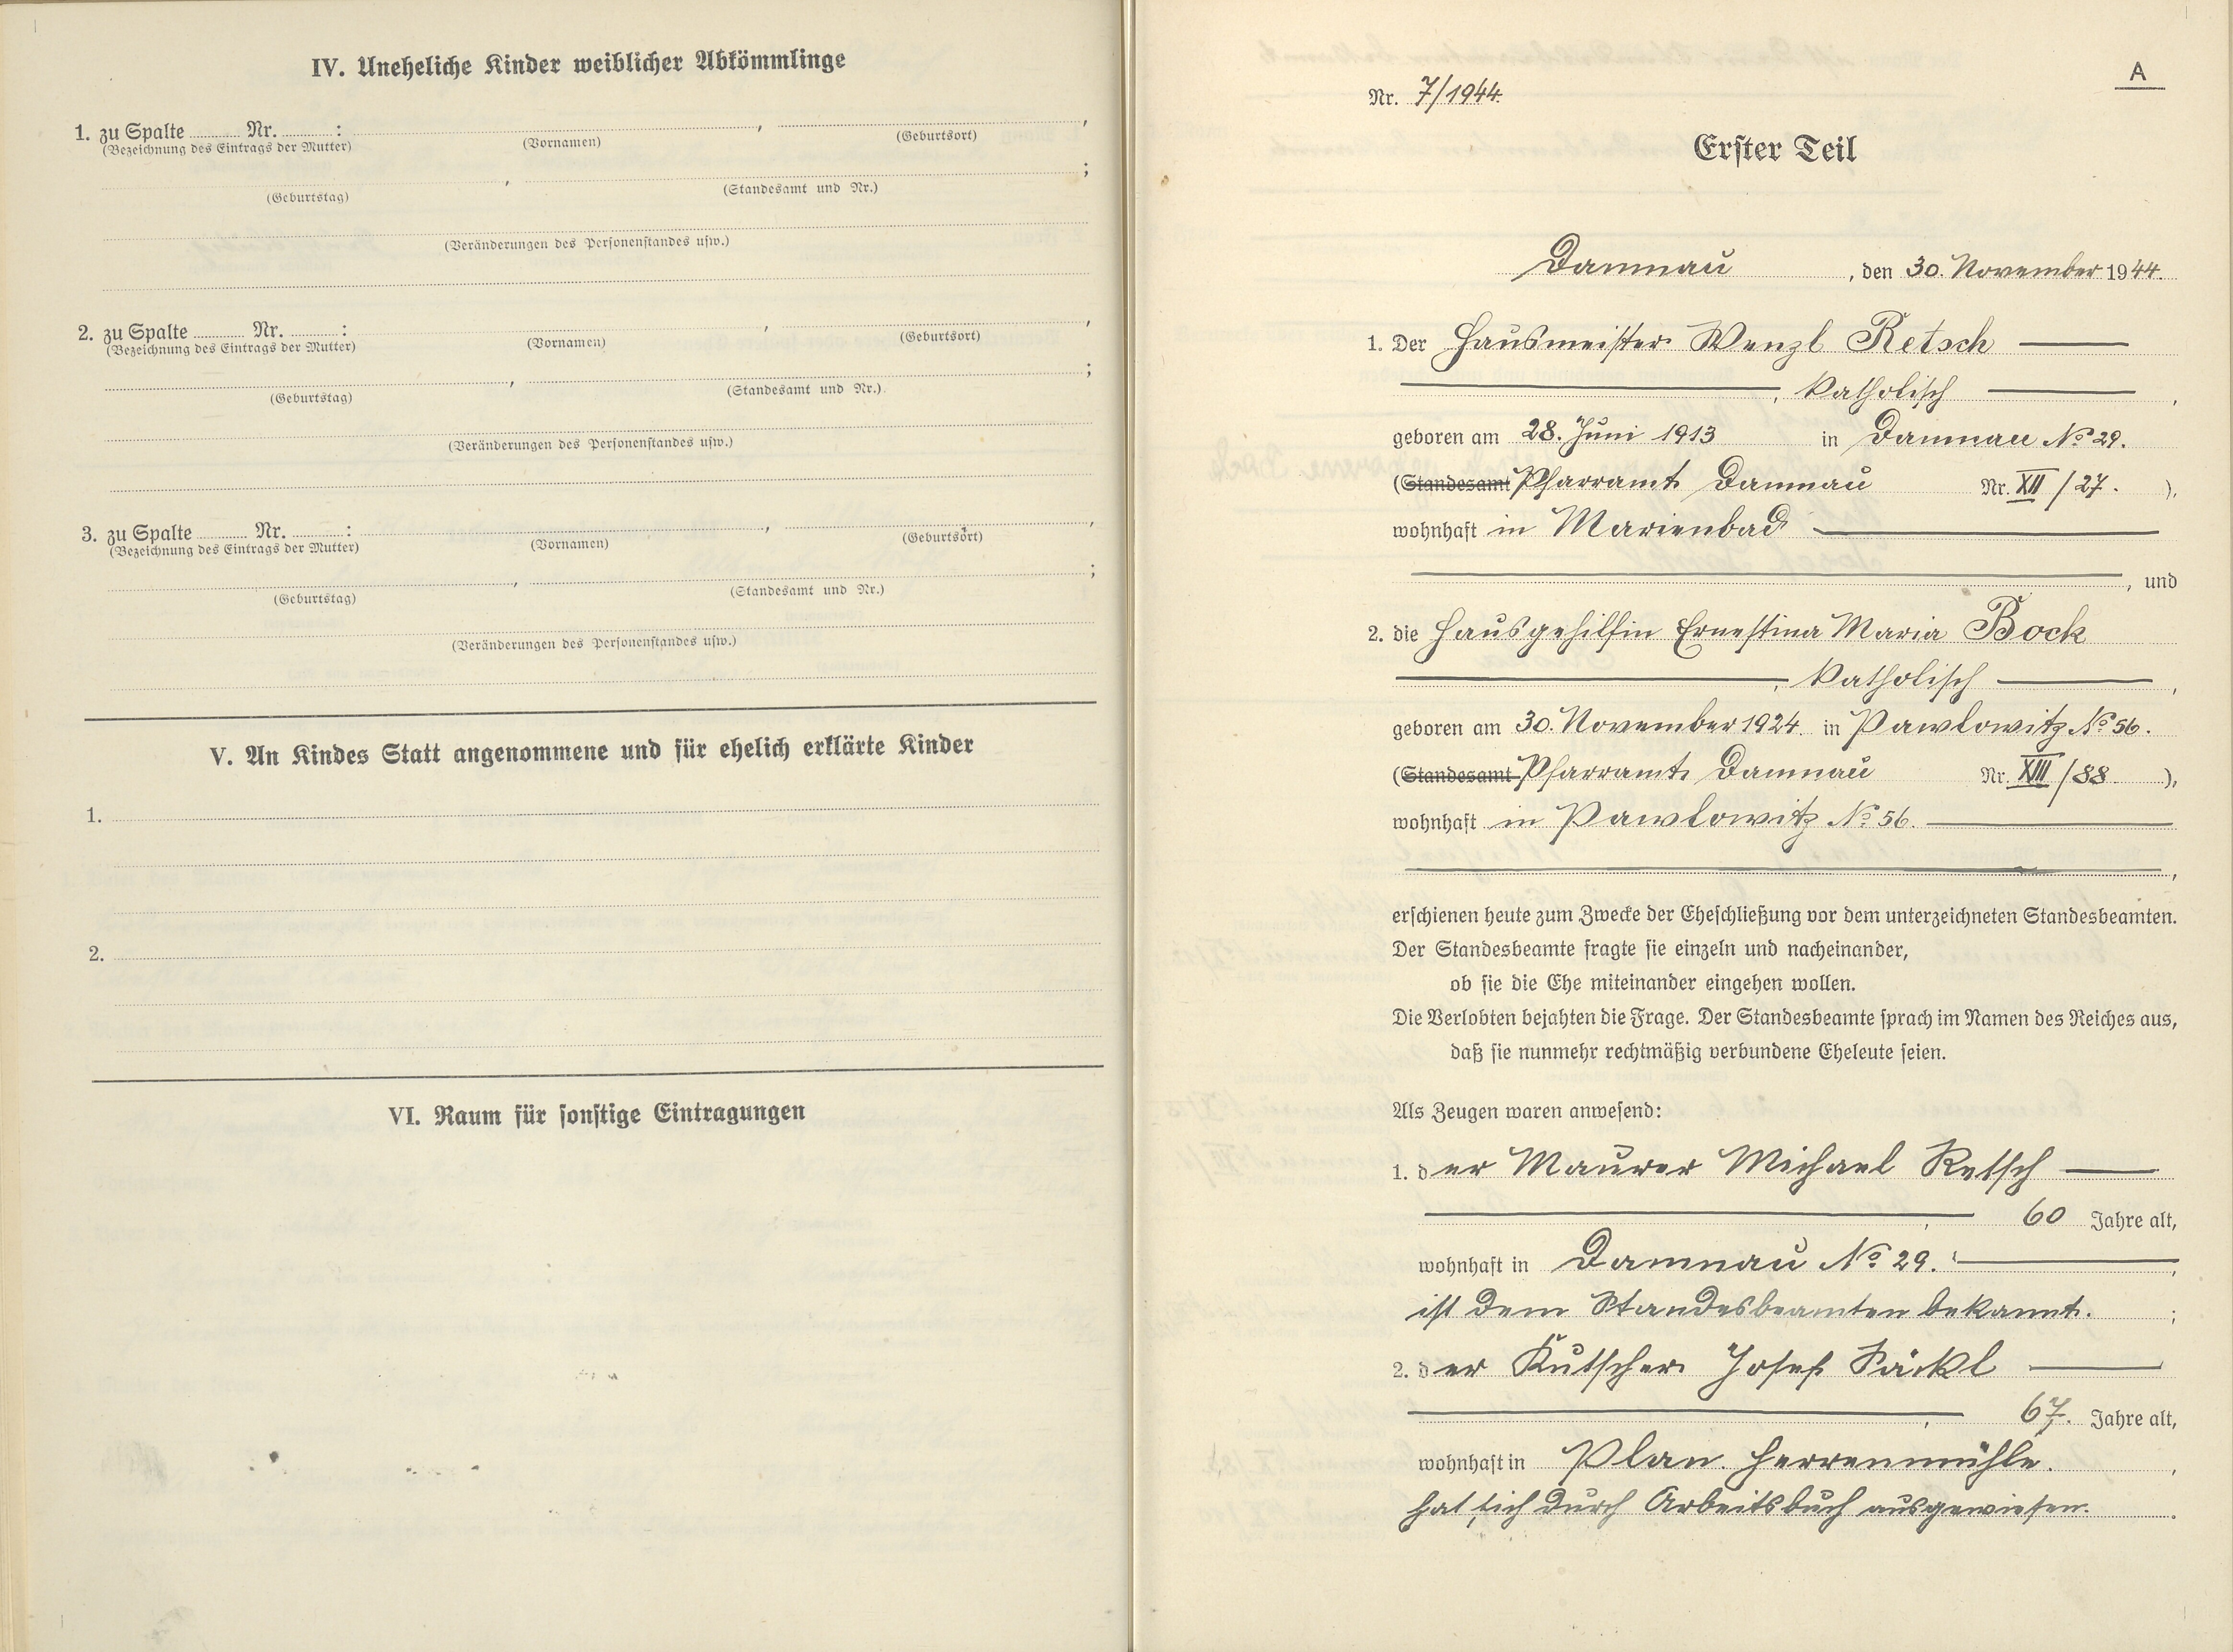 IV. Uneheliche Kinder weiblicher Abkömmlinge
1. zu Spalte ........ Nr. ........ : , ,
(Bezeichnung des Eintrags der Mutter) (Vornamen) (Geburtsort)
, ;
(Geburtstag) (Standesamt und Nr.)
(Veränderungen des Personenstandes usw.)
2. zu Spalte ........ Nr. ........ : , ,
(Bezeichnung des Eintrags der Mutter) (Vornamen) (Geburtsort)
, ;
(Geburtstag) (Standesamt und Nr.)
(Veränderungen des Personenstandes usw.)
3. zu Spalte ........ Nr. ........ : , ,
(Bezeichnung des Eintrags der Mutter) (Vornamen) (Geburtsort)
, ;
(Geburtstag) (Standesamt und Nr.)
(Veränderungen des Personenstandes usw.)
V. An Kindes Statt angenommene und für ehelich erklärte Kinder
1.
2.
VI. Raum für sonstige Eintragungen
A
Nr. 7/1944.
Erster Teil
Damnau, den 30. November 1944.
1. Der Hausmeister Wenzl Retsch
, katholisch ,
geboren am 28. Juni 1913 in Damnau No 29.
(Standesamt Pfarramt Damnau Nr. XII/27. ),
wohnhaft in Marienbad
, und
2. die Hausgehilfin Ernestina Maria Bock
, katholisch ,
geboren am 30. November 1924. in Pawlowitz No 56.
(Standesamt Pfarramt Damnau Nr. XIII/88 ),
wohnhaft in Pawlowitz No 56.
,
erschienen heute zum Zwecke der Eheschließung vor dem unterzeichneten Standesbeamten.
Der Standesbeamte fragte sie einzeln und nacheinander,
ob sie die Ehe miteinander eingehen wollen.
Die Verlobten bejahten die Frage. Der Standesbeamte sprach im Namen des Reiches aus,
daß sie nunmehr rechtmäßig verbundene Eheleute seien.
Als Zeugen waren anwesend:
1. der Maurer Michael Retsch
, 60 Jahre alt,
wohnhaft in Damnau No 29. ,
ist dem Standesbeamten bekannt. ;
2. der Kutscher Josef Säckl
, 67. Jahre alt,
wohnhaft in Plan. Herrenmühle. ,
hat sich durch Arbeitsbuch ausgewiesen.